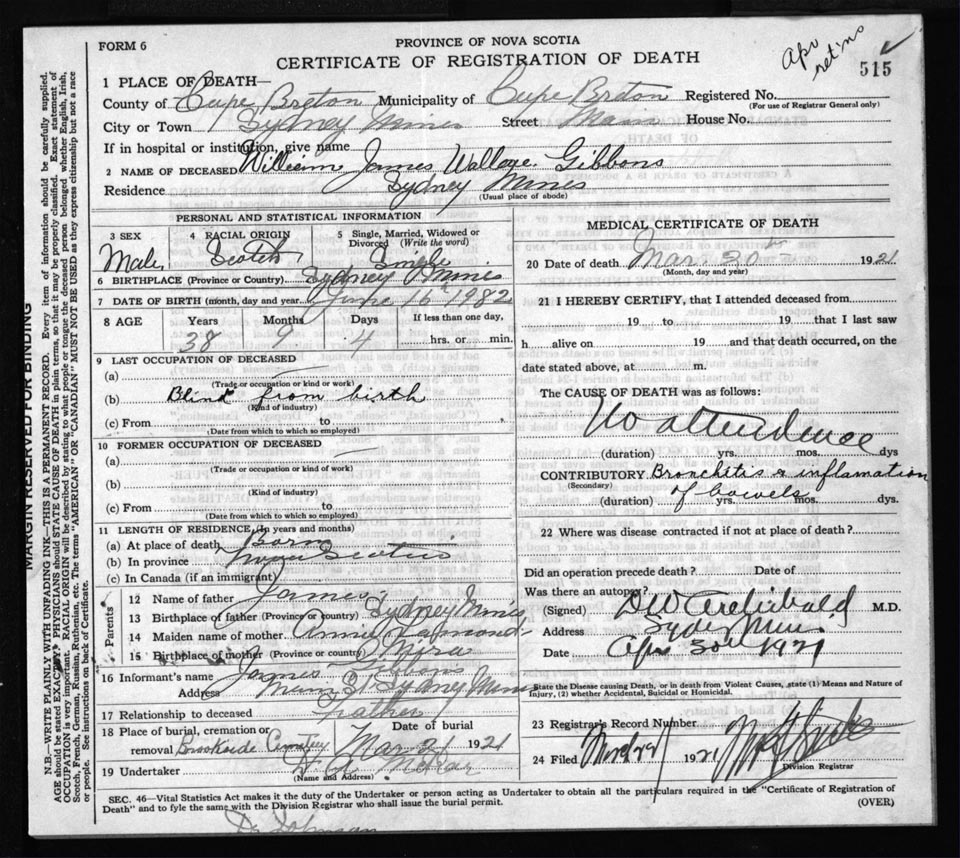 FORM 6
PROVINCE OF NOVA SCOTIA
CERTIFICATE OF REGISTRATION OF DEATH
Apr retins
515
1 PLACE OF DEATH—
County of Cape Breton Municipality of Cape Breton Registered No.
(For use of Registrar General only)
City or Town Sydney Mines Street Main House No.
If in hospital or institution, give name
2 NAME OF DECEASED William James Wallace Gibbons
Residence Sydney Mines
(Usual place of abode)
PERSONAL AND STATISTICAL INFORMATION
3 SEX Male
4 RACIAL ORIGIN Scotch
5 Single, Married, Widowed or Divorced (Write the word) Single
6 BIRTHPLACE (Province or Country) Sydney Mines
7 DATE OF BIRTH (month, day and year) June 16th 1982
8 AGE Years 38 Months 9 Days 4 If less than one day, hrs. or min.
9 LAST OCCUPATION OF DECEASED
(a)
(Trade or occupation or kind of work)
(b) Blind from birth
(Kind of industry)
(c) From to
(Date from which to which so employed)
10 FORMER OCCUPATION OF DECEASED
(a)
(Trade or occupation or kind of work)
(b)
(Kind of industry)
(c) From to
(Date from which to which so employed)
11 LENGTH OF RESIDENCE (In years and months)
(a) At place of death Born
(b) In province Nova Scotia
(c) In Canada (if an immigrant)
Parents
12 Name of father James
13 Birthplace of father (Province or country) Sydney Mines
14 Maiden name of mother Annie
15 Birthplace of mother (Province or country) Mira
16 Informant's name James Gibbons
Address Main St Sydney Mines
17 Relationship to deceased Father
18 Place of burial, cremation or removal Brookside Cemetery Date of burial Mar 21 1921
19 Undertaker
(Name and Address)
MEDICAL CERTIFICATE OF DEATH
20 Date of death Mar. 20th 1921
(Month, day and year)
21 I HEREBY CERTIFY, that I attended deceased from
19 to 19 that I last saw
h alive on 19 and that death occurred, on the
date stated above, at m.
The CAUSE OF DEATH was as follows:
No attendence
(duration) yrs. mos. dys
CONTRIBUTORY Bronchitis & inflamation
(Secondary) of bowels
(duration) yrs. mos. dys.
22 Where was disease contracted if not at place of death?
Did an operation precede death? Date of
Was there an autopsy?
(Signed) DW Archibald M.D.
Address Sydney Mines
Date Apr 30th 1921
State the Disease causing Death, or in death from Violent Causes, state (1) Means and Nature of Injury, (2) whether Accidental, Suicidal or Homicidal.
23 Registrar's Record Number
24 Filed March 29 1921
Division Registrar
SEC. 46—Vital Statistics Act makes it the duty of the Undertaker or person acting as Undertaker to obtain all the particulars required in the "Certificate of Registration of
Death" and to fyle the same with the Division Registrar who shall issue the burial permit. (OVER)
Dr Johnson
MARGIN RESERVED FOR BINDING
N.B.—WRITE PLAINLY WITH UNFADING INK—THIS IS A PERMANENT RECORD. Every item of information should be carefully supplied.
AGE should be stated EXACTLY. PHYSICIANS should STATE CAUSE OF DEATH in plain terms, so that it may be properly classified. Exact statement of
OCCUPATION is very important. RACIAL ORIGIN will be described by stating to what people or tongue the deceased person belonged whether English, Irish,
Scotch, French, German, Russian, Ruthenian, etc. The terms "AMERICAN" OR "CANADIAN" MUST NOT BE USED as they express citizenship but not a race
or people. See instructions on back of Certificate.